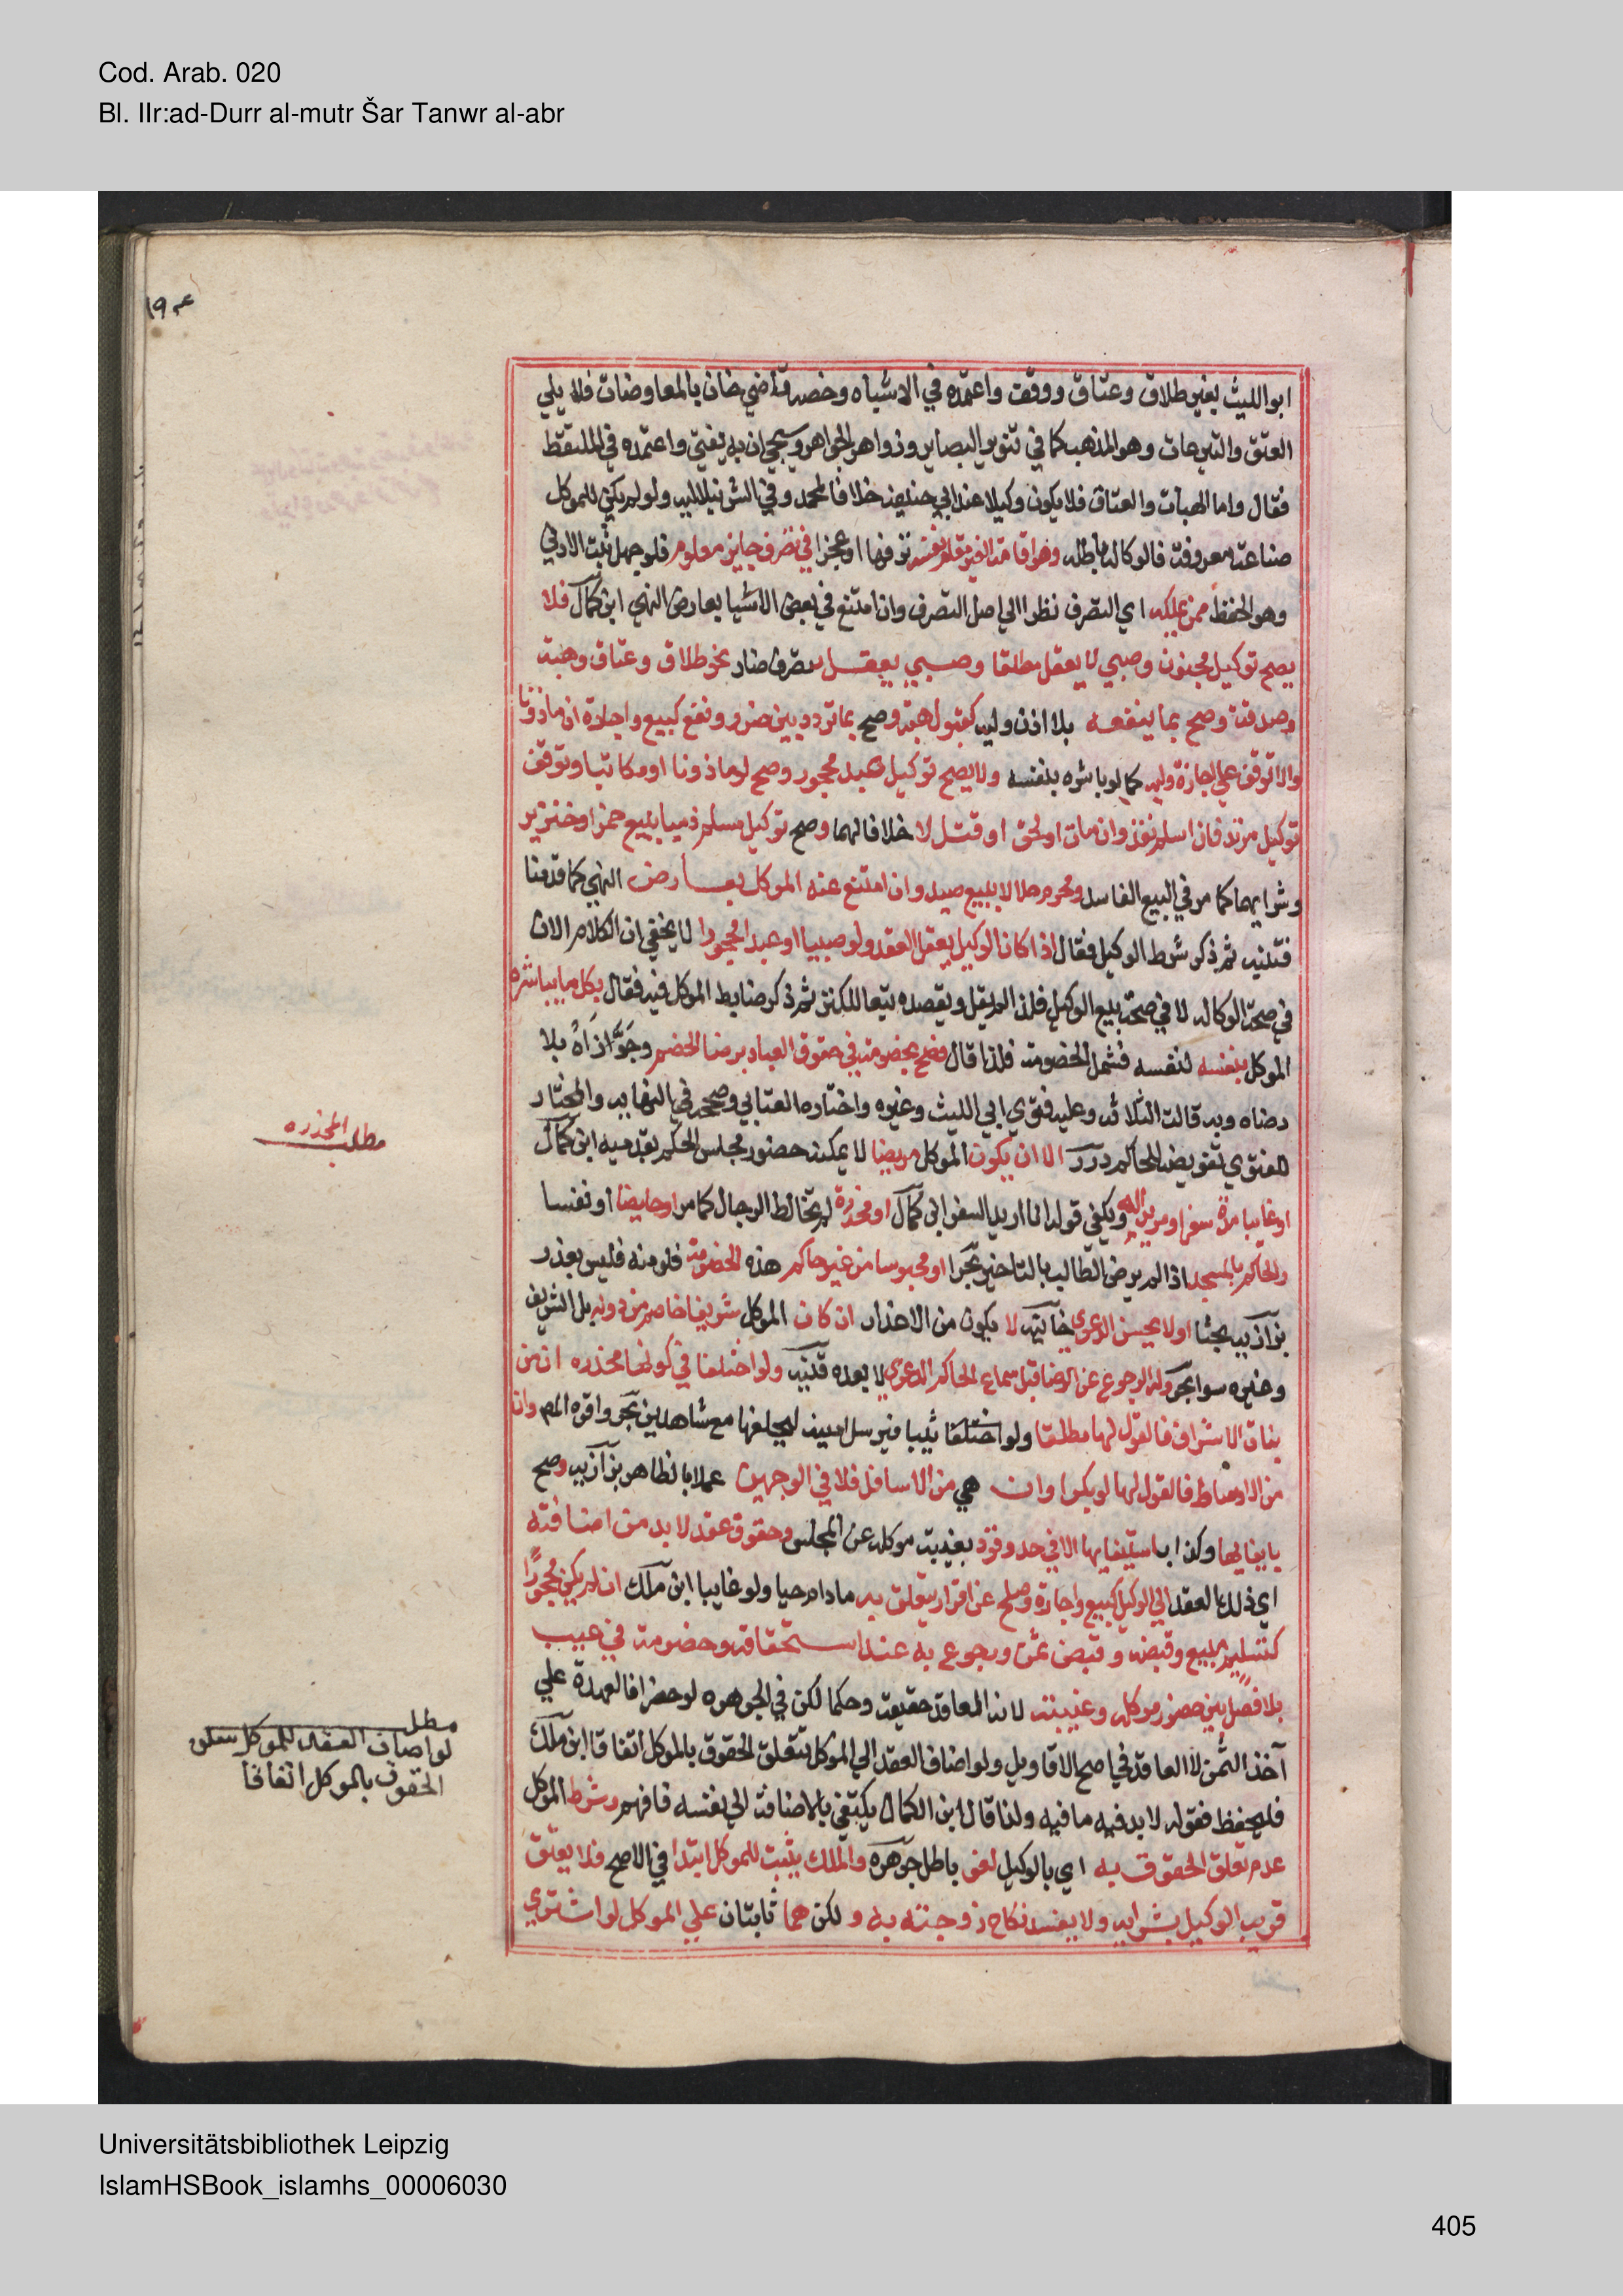 Cod. Arab. 020
Bl. IIr:ad-Durr al-mutr Šar Tanwr al-abr
ابو الليث بغير طلاق وعتاق ووقف واعتمده في الاشباه وخصه قاضي خان بالمعاوضات فلا يلي
العتق والتبرعات وهو المذهب كما في تنوير البصاير وزواهر الجواهر وسيجي ان به يفتي واعتمده في الملتقط
فقال واما الهبات والعتاق فلا يكون وكيلا عند ابي حنيفه خلافا لمحمد وفي الشرنبلاليه ولو لم يكن للموكل
صناعة معروفة فالوكاله باطله وهو اقامة الغير مقام نفسه ترفها او عجزا في تصرف جايز معلوم فلو جهل ثبت الادني
وهو الحفظ ممن يملكه اي التصرف نظرا الي اصل التصرف وان امتنع في بعض الاشيا بعارض النهي ابن كمال فلا
يصح توكيل مجنون وصبي لا يعقل مطلقا وصبي يعقل بتصرف ضار نحو طلاق وعتاق وهبة
وصدقة وصح بما ينفعه بلا اذن وليه كقبول هبة وصح بما تردد بين ضرر ونفع كبيع واجارة ان ماذونا
والا توقف علي اجازة وليه كما لو باشره بنفسه ولا يصح توكيل عبد محجور وصح لو ماذونا او مكاتبا وتوقف
توكيل مرتد فان اسلم نفذ وان مات او لحق او قتل لا خلافا لهما وصح توكيل مسلم ذميا ببيع خمر او خنزير
وشرايهما كما مر في البيع الفاسد ومحرم حلالا ببيع صيد وان امتنع عنه الموكل بعارض النهي كما قدمنا
فتنبه ثم ذكر شرط الوكيل فقال اذا كان الوكيل يعقل العقد ولو صبيا او عبدا محجورا لا يخفي ان الكلام الان
في صحة الوكاله لا في صحة بيع الوكيل فلذا لم يقل ويقصده تبعا للكنز ثم ذكر ضابط الموكل فيه فقال بكل ما يباشره
الموكل بنفسه لنفسه فشمل الخصومة فلذا قال فصح بخصومة في حقوق العباد برضا الخصم وجوزاه بلا
رضاه وبه قالت الثلاثه وعليه فتوي ابي الليث وغيره واختاره العتابي وصححه في النهايه والمختار
للفتوي تفويضه للحاكم درر الا ان يكون الموكل مريضا لا يمكنه حضور مجلس الحكم بقدميه ابن كمال
او غايبا مدة سفر او مريدا له ويكفي قوله انا اريد السفر ابن كمال او مخدرة لم تخالط الرجال كما مر او حايضا او نفسا
والحاكم بالمسجد اذا لم يرض الطالب بالتاخير بحر او محبوسا من غير حاكم هذه الخصومة فلو منه فليس بعذر
بزازيه بحثا او لا يحسن الدعوي خانيه لا يكون من الاعذار ان كان الموكل شريفا خاصم من دونه بل الشريف
وغيره سوا بحر وله الرجوع عن الرضا قبل سماع الحاكم الدعوي لا بعده قنيه ولو اختلفا في كونها مخدره ان من
بنات الاشراف فالقول لها مطلقا ولو اختلفا ثيبا فيرسل امينه ليحلفها مع شاهدين بحر واقره المص وان
من الاوساط فالقول لها لو بكرا وان هي من الاسافل فلا في الوجهين عملا بالظاهر بزازيه وصح
بايفايها وكذا باستيفايها الا في حد وقود بغيبة موكله عن المجلس وحقوق عقد لا بد من اضافته
اي ذلك العقد الي الوكيل كبيع واجارة وصلح عن اقرار يتعلق به ما دام حيا ولو غايبا ابن ملك ان لم يكن محجورا
كتسليم مبيع وقبضه وقبض ثمن ورجوع به عند استحقاقه وخصومة في عيب
بلا فصل بين حضور موكله وغيبته لانه المعاقد حقيقة وحكما لكن في الجوهره لو حضرا فالعهدة علي
آخذ الثمن لا العاقد في اصح الاقاويل ولو اضاف العقد الي الموكل تتعلق الحقوق بالموكل اتفاقا ابن ملك
فليحفظ فقوله لا بد فيه ما فيه ولذا قال ابن الكمال يكتفي بالاضافة الي نفسه فافهم وشرط الموكل
عدم تعلق الحقوق به اي بالوكيل لغو باطل جوهره والملك يثبت للموكل ابتدا في الاصح فلا يعتق
قريب الوكيل بشرايه ولا يفسد نكاح زوجته به ولكن هما ثابتان علي الموكل لو اشتري
مطلب المخدره
مطلب
لو اضاف العقد للموكل تتعلق
الحقوق بالموكل اتفاقا
Universitätsbibliothek Leipzig
IslamHSBook_islamhs_00006030
405